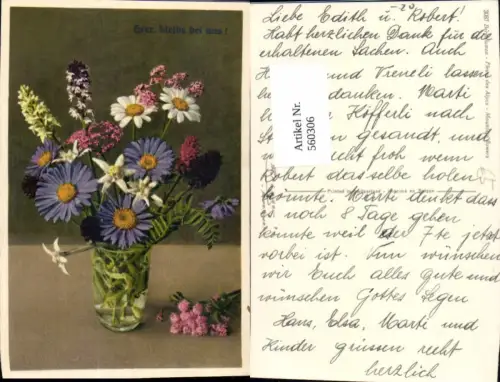 Herr, bleibe bei uns!
Liebe Edith u. Robert!
Habt herzlichen Dank für die
erhaltenen Sachen. Auch
und Vreneli lassen
danken. Marti
Köfferli nach
gesandt, und
recht froh wenn
Robert dasselbe holen
könnte. Marti denkt dass
noch 8 Tage gehen
könnte weil der 7te jetzt
vorbei ist. Nun wünschen
wir Euch alles gute und
wünschen Gottes Segen
Hans, Elsa, Marti und
Kinder grüssen recht
herzlich
Artikel Nr.
560306